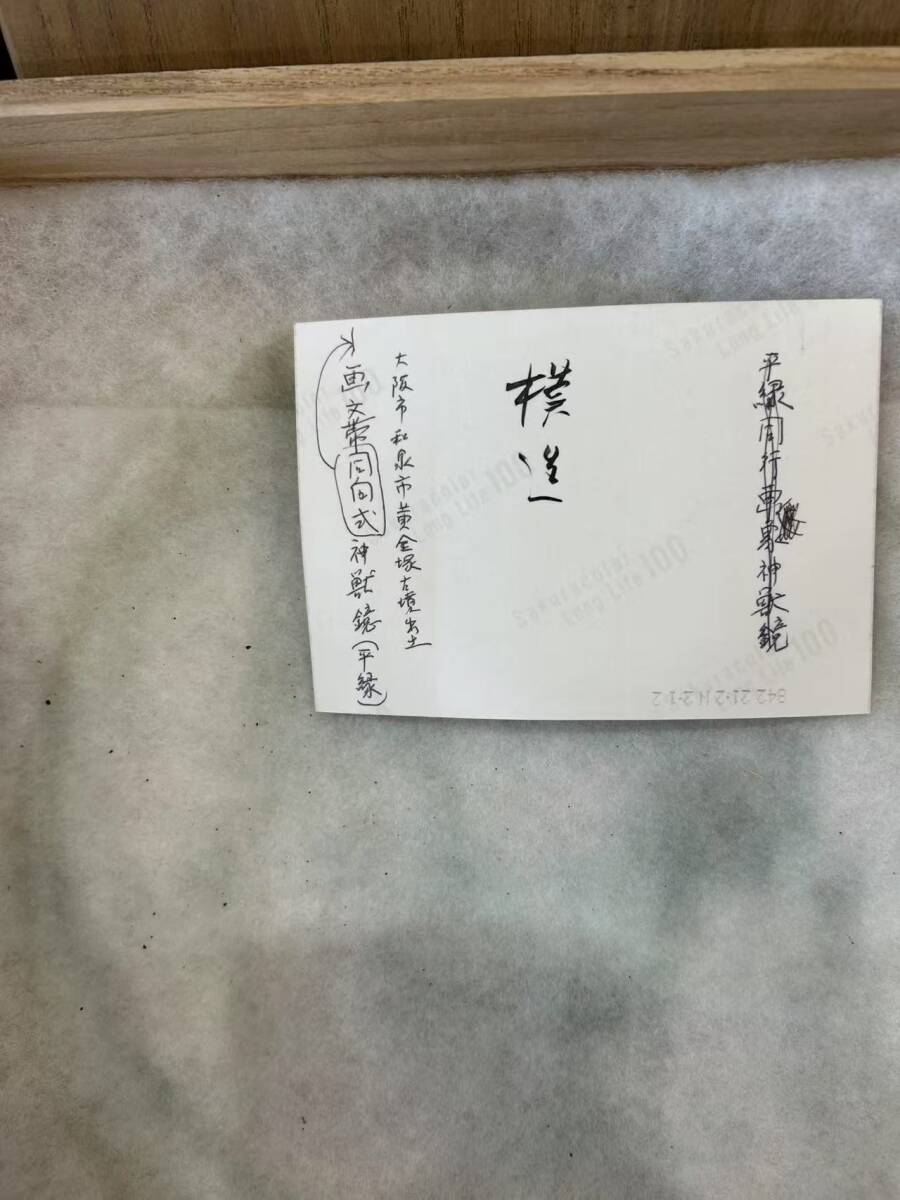 平縁同行画身神獣鏡
模造
大阪市和泉市黄金塚古墳出土
画文帯同向式神獣鏡(平縁)
Sakuracolor
Long Life 100